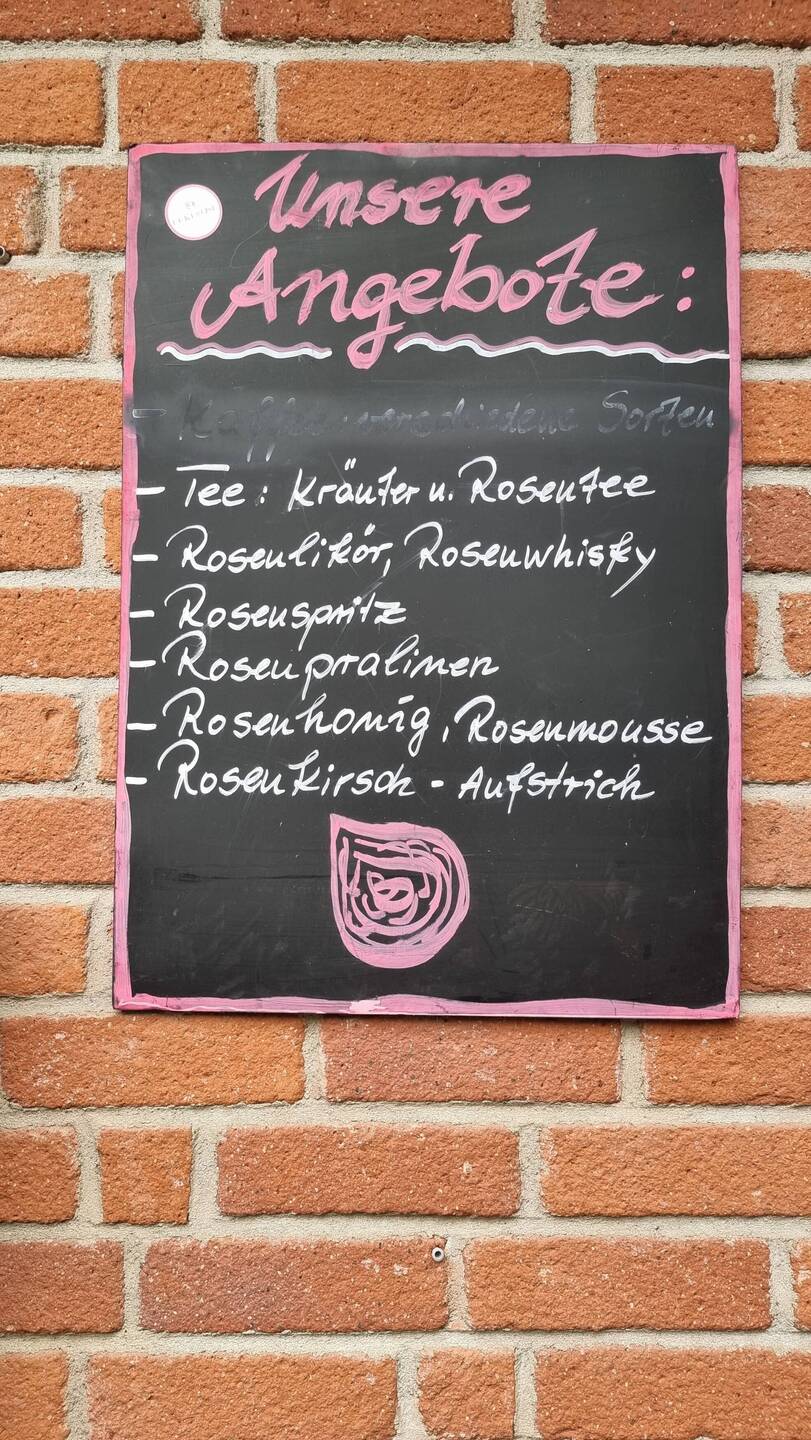 Unsere
Angebote:
- Kaffee: verschiedene Sorten
- Tee: Kräuter u. Rosentee
- Rosenlikör, Rosenwhisky
- Rosenspritz
- Rosenpralinen
- Rosenhonig, Rosenmousse
- Rosenkirsch - Aufstrich